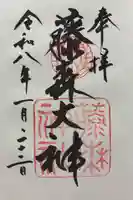 奉拝
藤森大神
令和八年一月二十二日